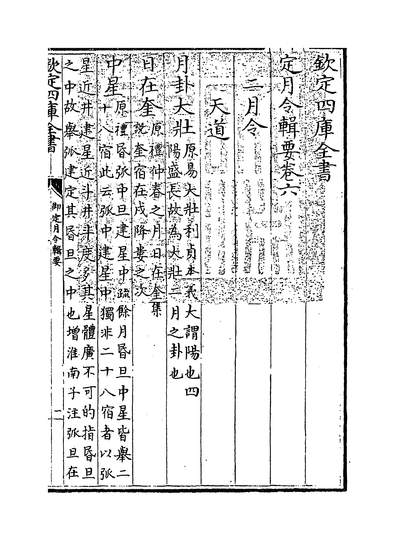 欽定四庫全書
定月令輯要卷六
二月令
天道
月卦大壯原易大壯利貞本義大謂陽也四
陽盛長故為大壯二月之卦也
日在奎原禮仲春之月日在奎集
說奎宿在戌降婁之次
中星原禮昏弧中旦建星中疏餘月昏旦中星皆舉二
十八宿此云弧中建星中獨非二十八宿者以弧
星近井建星近斗井斗度多其星體廣不可的指昏旦
之中故舉弧建定其昏旦之中也增淮南子注弧旦在
欽定四庫全書
御定月令輯要
一